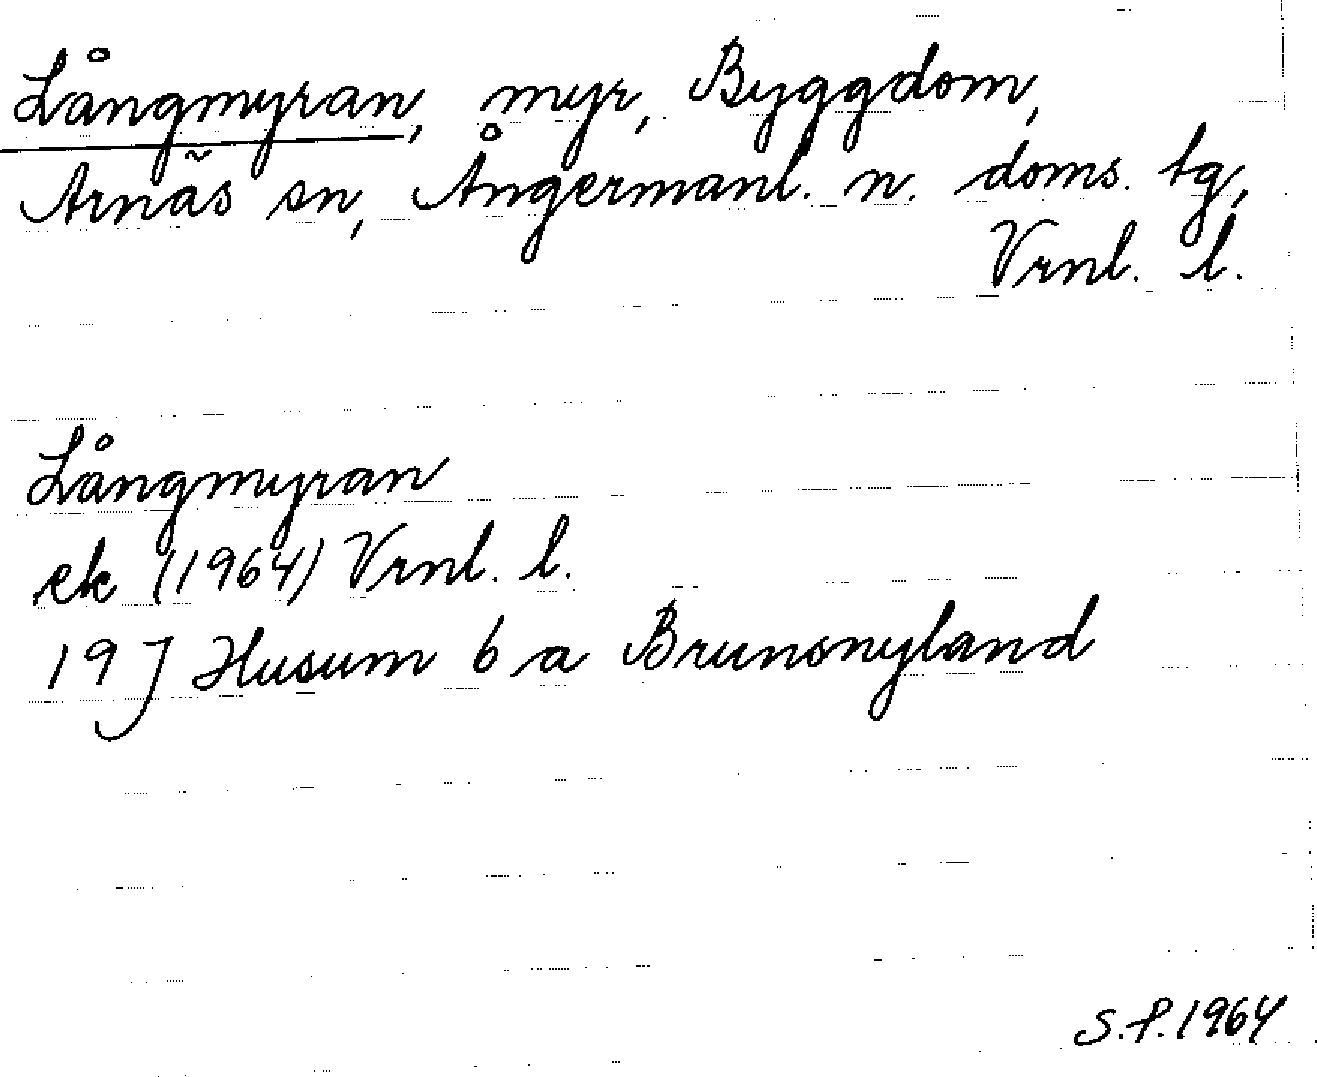 Långmyran, myr, Byggdom,
Arnäs sn, Ångermanl. n. doms. tg,
Vrnl. l.
Långmyran
ek (1964) Vrnl. l.
19 J Husum 6 a Brunsnyland
S.P. 1964